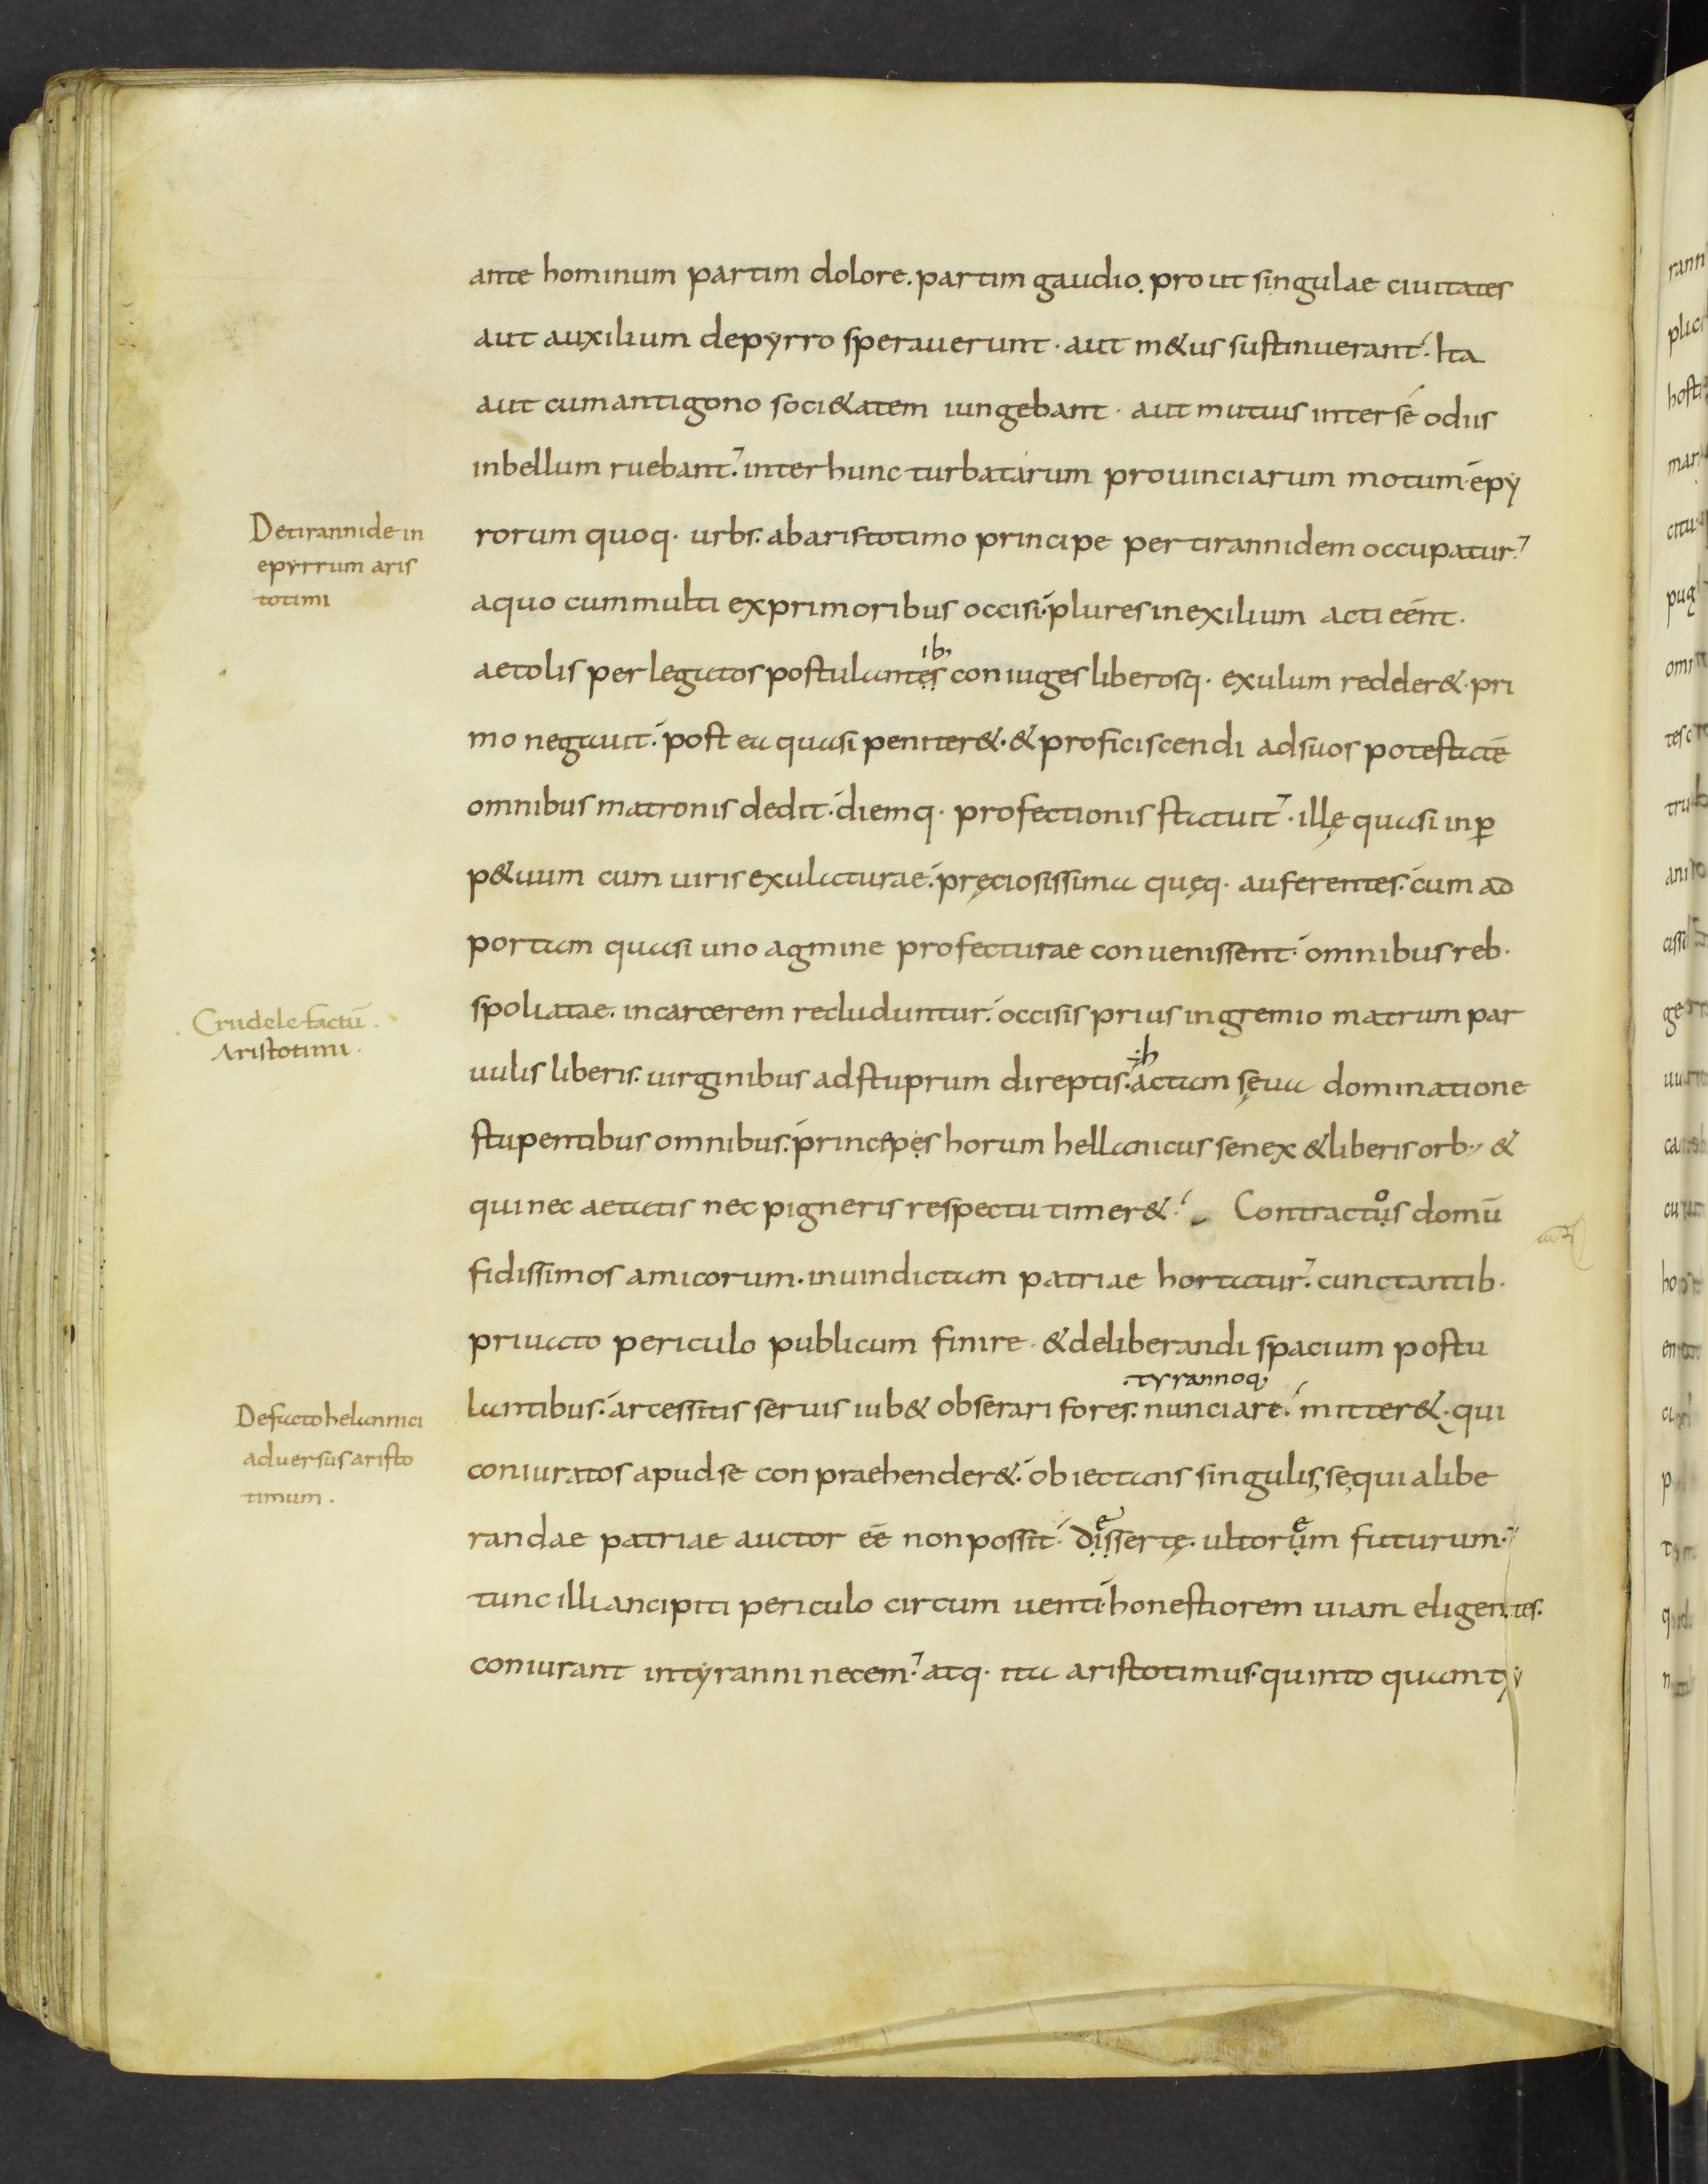 ante hominum partim dolore. partim gaudio. prout singulae ciuitates
aut auxilium depyrro sperauerunt · aut m&us sustinuerant. Ita
aut cumantigono soci&atem iungebant · aut mutuis inter sé odiis
inbellum ruebant. inter hunc turbatarum prouinciarum motum. epy
Detirannide in
epyrrum aris
totimi
rorum quoq· urbs. abaristotimo principe per tirannidem occupatur.
aquo cummulti exprimoribus occisi. plures inexilium acti eent̄.
ib;
aetolis per legatos postulantẹṣ coniuges liberosq· exulum redder&· pri
mo negauit. post ea quasi peniter&· & proficiscendi adsuos potestatē
omnibus matronis dedit. diemq· profectionis statuit · illę quasi inꝑ
p&uum cum uiris exulaturae. pręciosissima quęq· auferentes. cum ad
portam quasi uno agmine profecturae conuenissent. omnibus reb·
Crudele factū
Aristotimi·
spoliatae. incarcerem recluduntur. occisis prius ingremio matrum par
uulis liberis. uirginibus adstuprum direptis. actam sęua dominatione
stupentibus omnibus. principẹs horum hellanicus senex & liberis orb· &
qui nec aetatis nec pigneris respectu timer& Contractụos domū
fidissimos amicorum. inuindictam patriae hortatur. cunctantib·
priuato periculo publicum finire · & deliberandi spacium postu
tyrannoq;
Defacto helannici
aduersus aristo
timum.
lantibus. arcessitis seruis iub& obserari fores. nunciare. mitter&· qui
coniuratos apudse conpraehender&. obiectans singulis, sęquia libe
randae patriae auctor eē non possit. dịṣsertę· ultorụem futurum.
tunc illi ancipiti periculo circum uenti. honestiorem uiam eligentes.
coniurant intyranni necem. atq· ita aristotimus. quinto quam ty